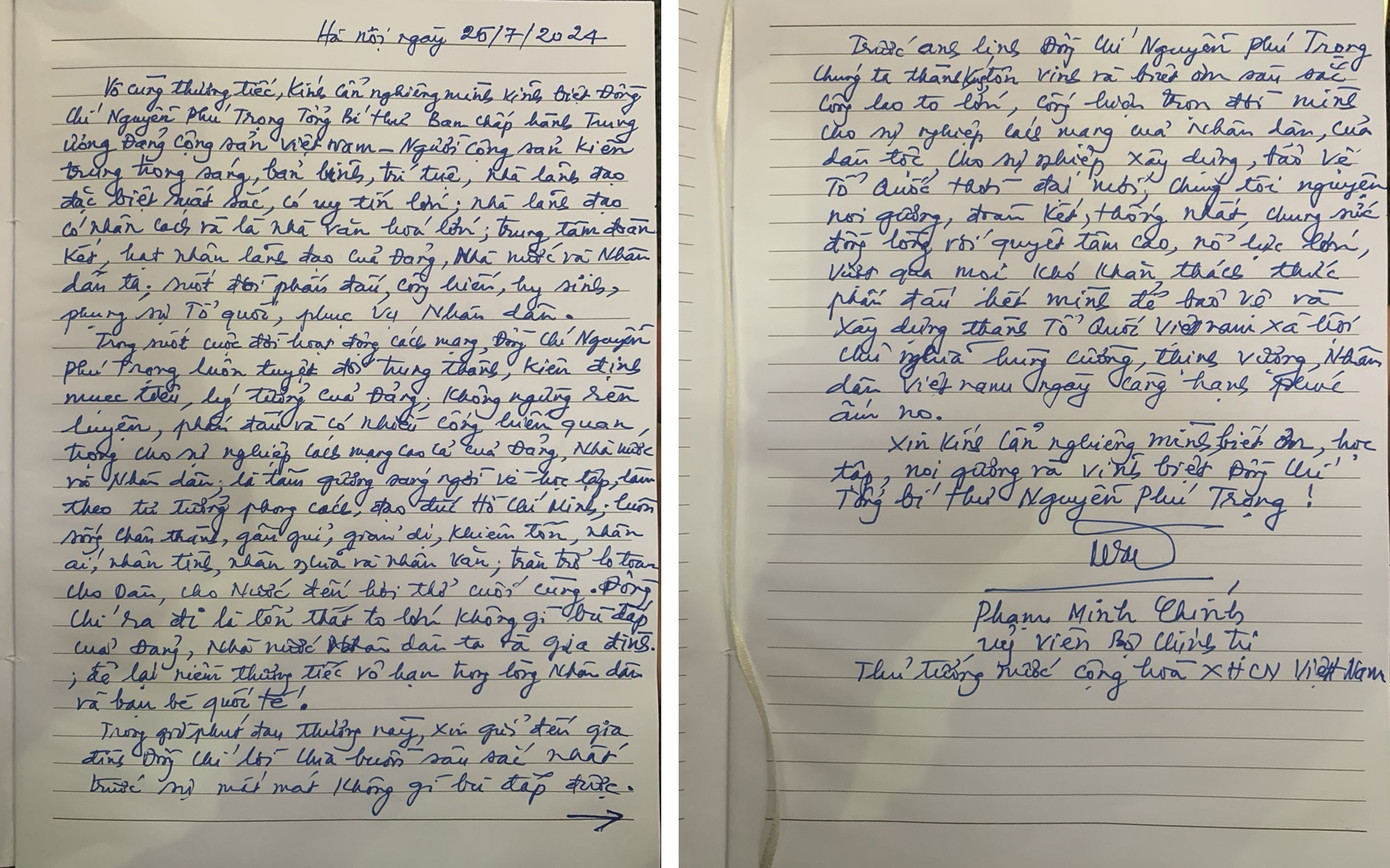 Hà nội ngày 25/7/2024
Vô cùng thương tiếc, Kính cẩn nghiêng mình vĩnh biệt Đồng
Chí Nguyễn Phú Trọng Tổng Bí thư Ban chấp hành Trung
ương Đảng Cộng sản Việt Nam – Người Cộng sản kiên
trung trong sáng, bản lĩnh, trí tuệ, nhà lãnh đạo
đặc biệt xuất sắc, có uy tín lớn; nhà lãnh đạo
có nhân cách và là nhà văn hoá lớn; trung tâm đoàn
kết, hạt nhân lãnh đạo của Đảng, Nhà nước và Nhân
dân ta; suốt đời phấn đấu, cống hiến, hy sinh,
phụng sự Tổ quốc, phục vụ Nhân dân.
Trong suốt cuộc đời hoạt động cách mạng, Đồng Chí Nguyễn
Phú Trọng luôn tuyệt đối trung thành, kiên định
mục tiêu, lý tưởng của Đảng; Không ngừng rèn
luyện, phấn đấu và có nhiều cống hiến quan,
trọng cho sự nghiệp cách mạng cao cả của Đảng, Nhà nước
và Nhân dân; là tấm gương sáng ngời về học tập, làm
theo tư tưởng phong cách, đạo đức Hồ Chí Minh; luôn
sống chân thành, gần gũi, giản dị, khiêm tốn, nhân
ái, nhân tình, nhân nghĩa và nhân văn; trăn trở lo toan
cho Dân, cho Nước đến hơi thở cuối cùng. Đồng
Chí ra đi là tổn thất to lớn không gì bù đắp
của Đảng, Nhà nước Nhân dân ta và gia đình.
; để lại niềm thương tiếc vô hạn trong lòng Nhân dân
và bạn bè quốc tế.
Trong giờ phút đau thương này, xin gửi đến gia
đình Đồng Chí lời chia buồn sâu sắc nhất
trước sự mất mát không gì bù đắp được.
→
Trước anh linh Đồng Chí Nguyễn Phú Trọng
Chúng ta thành kính tôn vinh và biết ơn sâu sắc
công lao to lớn, cống hiến trọn đời mình
cho sự nghiệp cách mạng của Nhân dân, của
dân tộc cho sự nghiệp xây dựng, bảo vệ
Tổ Quốc thời đại mới; Chúng tôi nguyện
noi gương, đoàn kết, thống nhất, chung sức
đồng lòng với quyết tâm cao, nỗ lực lớn,
vượt qua mọi khó khăn thách thức
phấn đấu hết mình để bảo vệ và
xây dựng thành Tổ Quốc Việt nam xã hội
chủ nghĩa hùng cường, thịnh vượng, Nhân
dân Việt nam ngày càng hạnh phúc
ấm no.
Xin Kính Cẩn nghiêng mình, biết ơn, học
tập, noi gương và vĩnh biệt Đồng Chí
Tổng bí thư Nguyễn Phú Trọng!
Phạm Minh Chính
uỷ viên Bộ Chính trị
Thủ tướng nước Cộng hoà XHCN Việt Nam